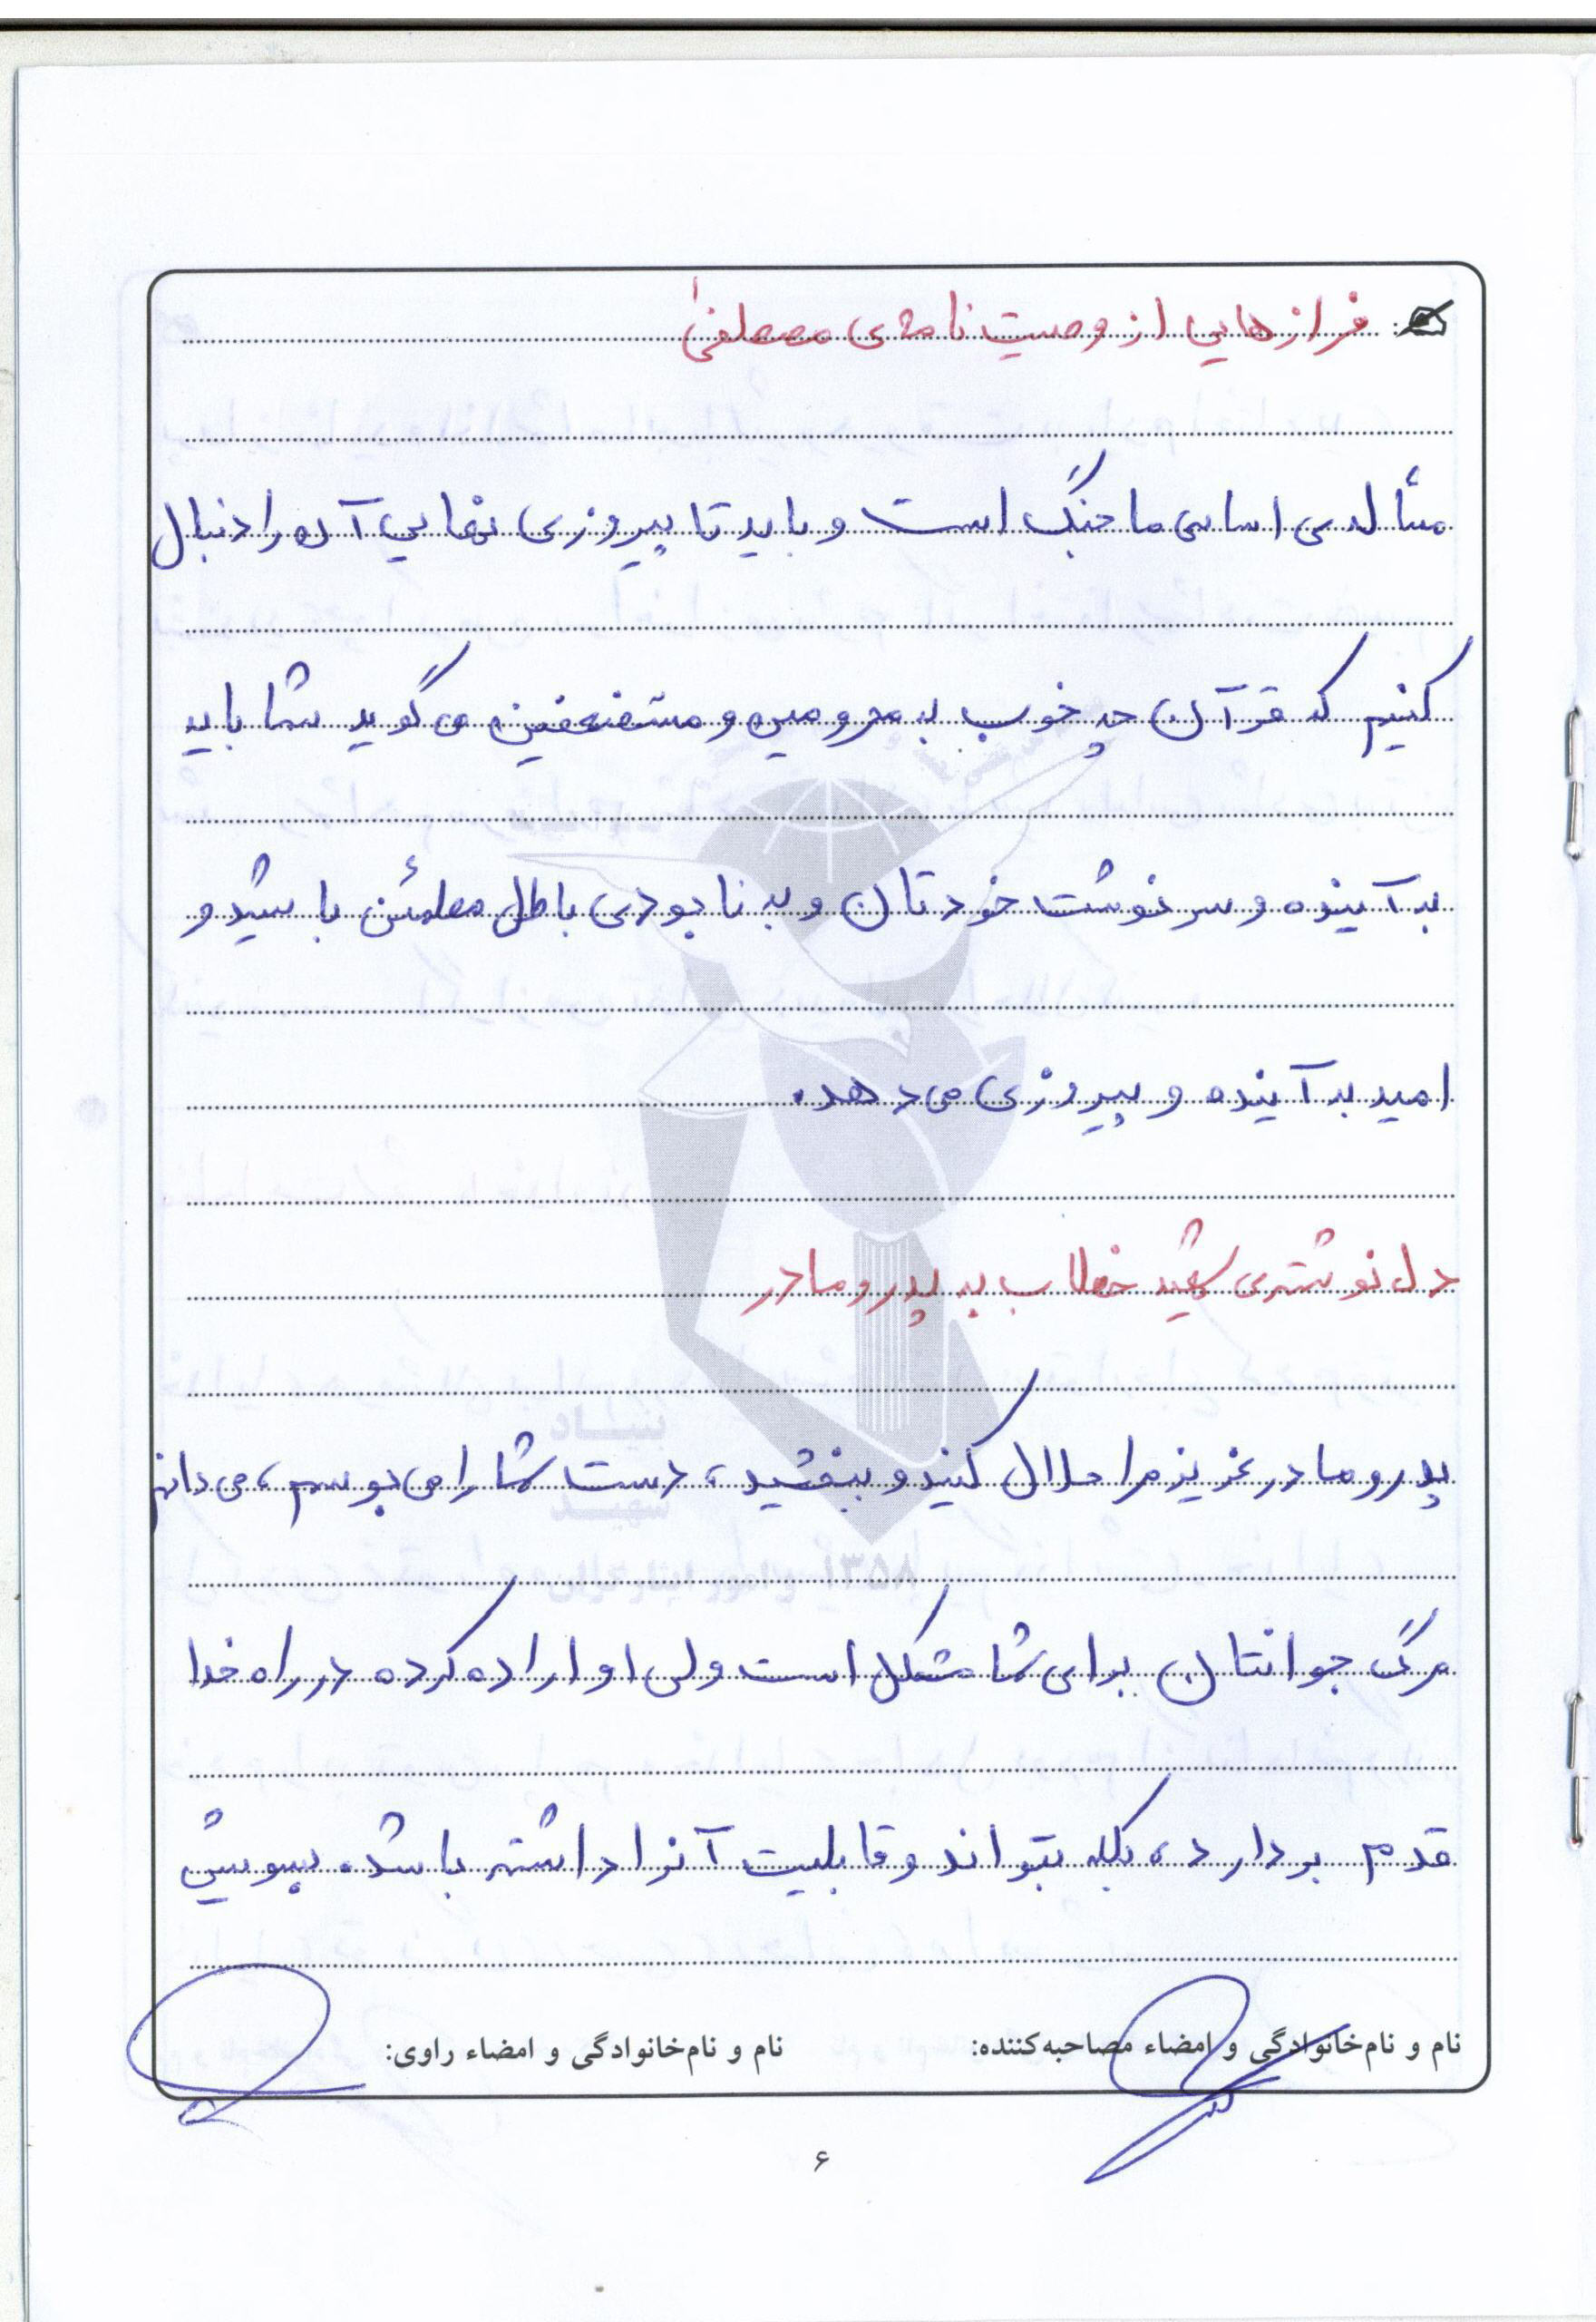 فرازهایی از وصیت نامه ی مصطفیٰ
مسأله ی اساسی ما جنگ است و باید تا پیروزی نهایی آن را دنبال
کنیم که قرآن چه خوب به محرومین و مستضعفین می گوید شما باید
به آینده و سرنوشت خودتان و به نابودی باطل مطمئن باشید و
امید به آینده و پیروزی می دهد.
دل نوشته ی شهید خطاب به پدر و مادر
بنیاد
شهید
پدر و مادر عزیز مرا حلال کنید و ببخشید، دست شما را می بوسم، می دانم
و امور ایثارگران ۱۳۵۸
مرگ جوانتان برای شما مشکل است ولی او اراده کرده در راه خدا
قدم بردارد، بلکه بتواند و قابلیت آنرا داشته باشد. بسوشی
نام و نام‌خانوادگی و امضاء مصاحبه‌کننده: نام و نام‌خانوادگی و امضاء راوی:
۶